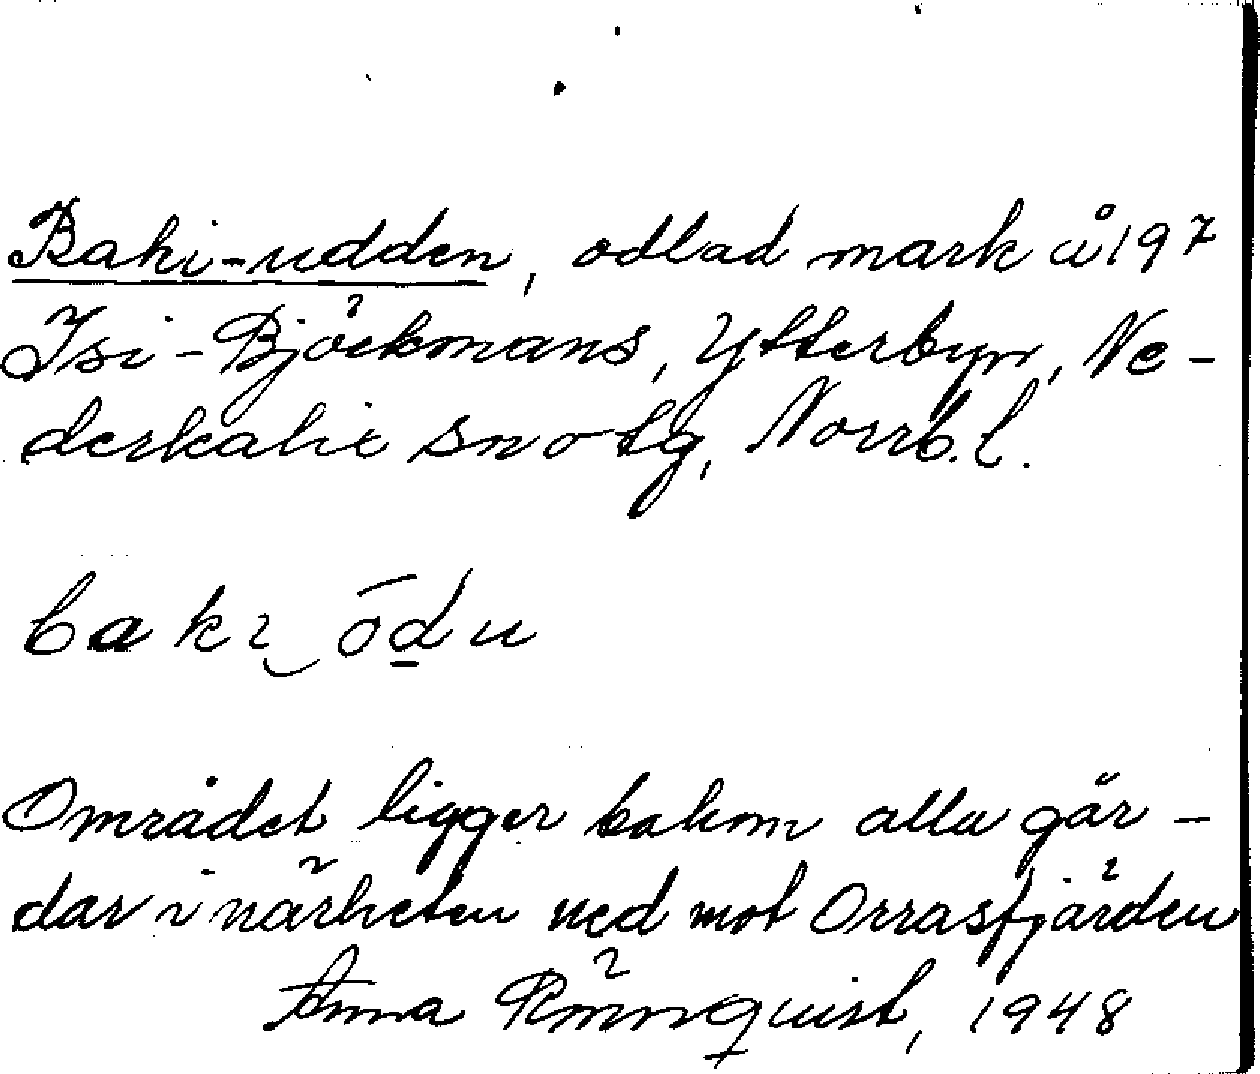 Baki-udden, odlad mark å 197
Isi-Björkmans, Ytterbyn, Ne-
derkalix sn o tg, Norrb. l.
bakɩ ōdu
Området ligger bakom alla går-
dar i närheten ned mot Orrasfjärden
Anna Rönnquist, 1948